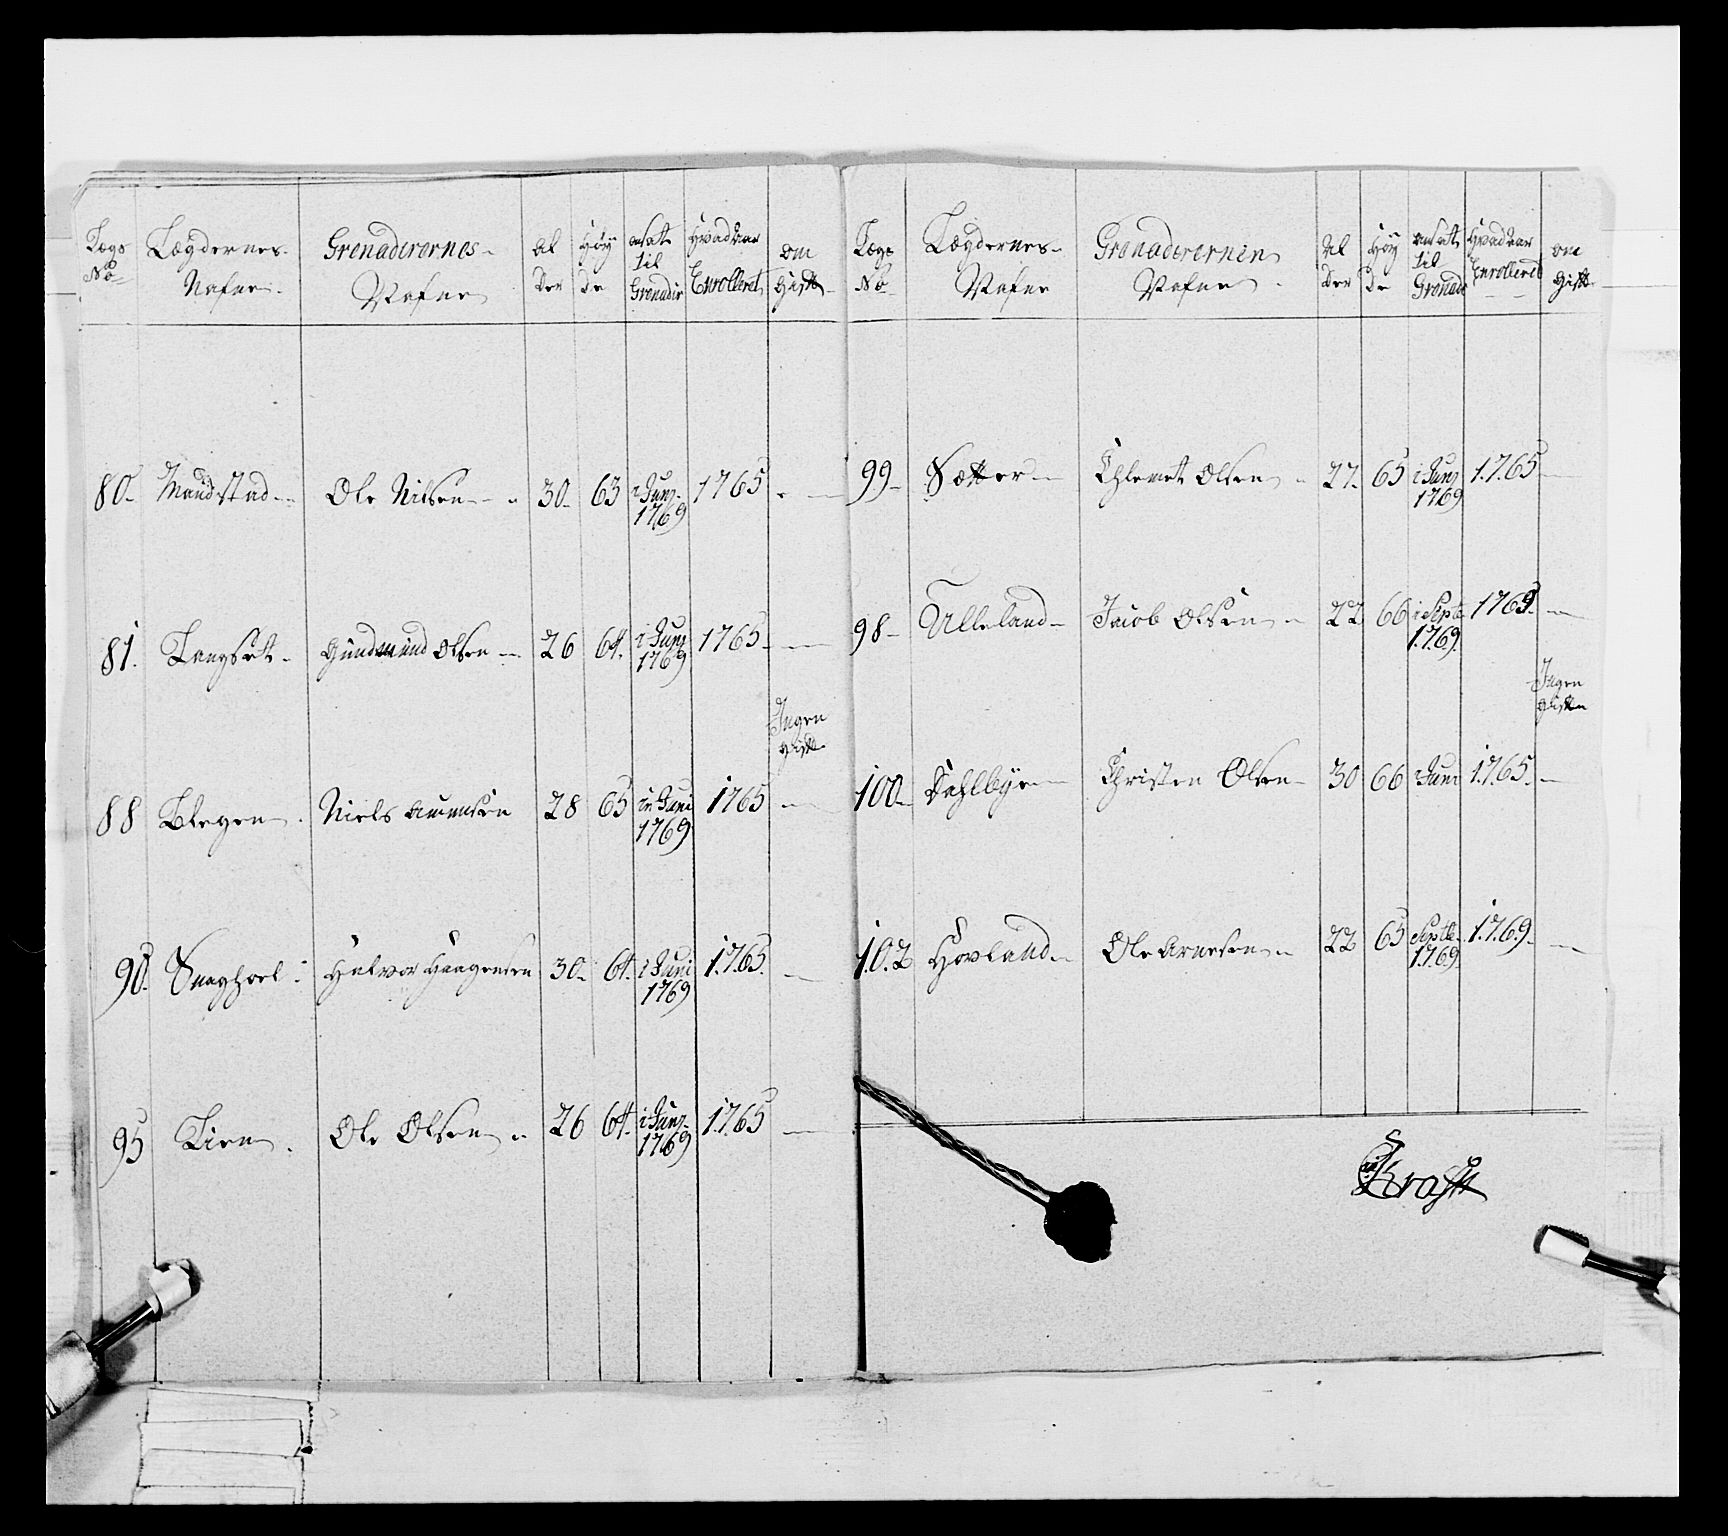 Lægs No | Lægdernes Nafne | Grenaderernes Nafne | Al der | Høy de | ansatt til Grenadir | Hvad aar Enrolleret | om Gift
80 | Mandstad | Ole Nilsen | 30 | 63 | i Juny 1769 | 1765 | —
81. | Langset | Gundmund Olsen | 26 | 64. | i Juny 1769 | 1765 | —
Ingen Gift
88 | Blegen | Niels Amunsen | 28 | 65 | in Juni 1769 | 1765 | —
90. | Snaghoel | Halvor Haagensen | 30 | 64. | i Juni 1769 | 1765. | —
95 | Lien | Ole Olsen | 26 | 64. | i Juny 1769 | 1765 | —
Lægs No | Lægdernes Nafne | Grenaderernen Nafne | Al der | Høy de | ansatt til Grenad | Hvad aar Enrolleret | om Gift
99 | Sætter | Chlemet Olsen | 27. | 65 | i Juny 1769 | 1765 | —
98 | Ulleland | Jacob Olsen | 22 | 66 | i Septb 1769. | 1769. | —
Ingen Giftn
100 | Dahlbye | Christen Olsen | 30 | 66 | i Juni | 1765. | —
102 | Hovland | Ole Arnesen | 22 | 65 | Septb 1769. | 1769. | —
Krafft